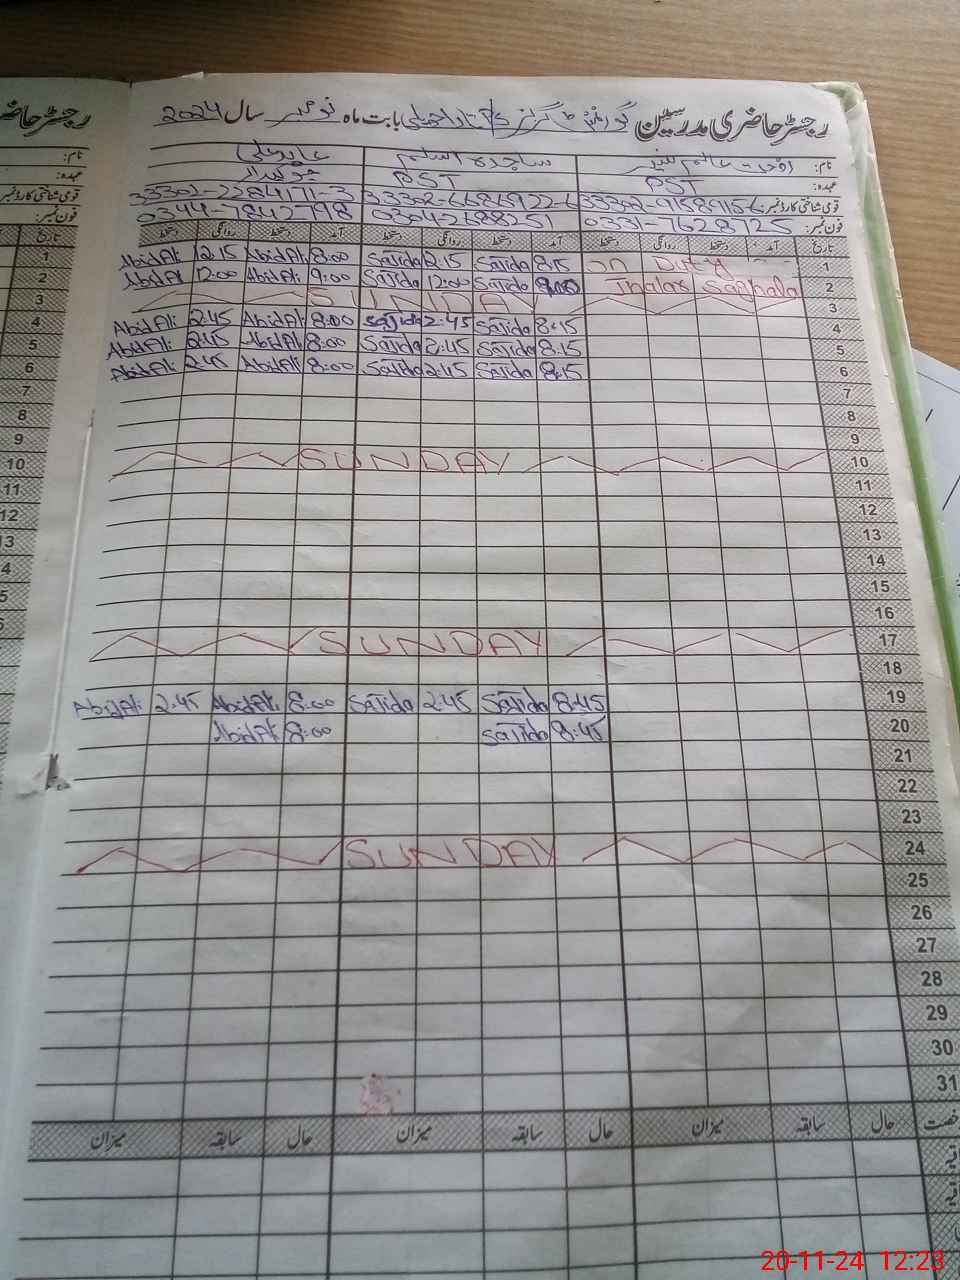 رجسٹر حاضری مدرسین گورنمنٹ گرلز بابت ماہ نومبر سال 2024
رجسٹر حاضر
نام: ساجدہ اسلم عابد علی
نام:
عہدہ: PST PST چوکیدار
عہدہ:
قومی شناختی کارڈ نمبر: 33302-6686922-6 33302-2284171-3
قومی شناختی کارڈ نمبر
فون نمبر: 0331-7628725 0304-2688251 0344-7842798
فون نمبر:
تاریخ آمد دستخط روانگی دستخط آمد دستخط روانگی دستخط آمد دستخط روانگی دستخط
تاریخ
1 Abid Ali 12:15 Abid Ali 8:00 Sajida 2:15 Sajida 8:15 on Duty 1
2 Abid Ali 12:00 Abid Ali 9:00 Sajida 12:00 Sajida Jhalar Saghala 2
3 SUNDAY 3
4 Abid Ali 2:45 Abid Ali 8:00 Sajida 2:45 Sajida 8:15 4
5 Abid Ali 2:45 Abid Ali 8:00 Sajida 8:45 Sajida 8:15 5
6 Abid Ali 2:45 Abid Ali 8:00 Sajida 2:45 Sajida 8:15 6
7 7
8 8
9 9
10 SUNDAY 10
11 11
12 12
13 13
4 14
5 15
6 16
SUNDAY 17
18
Abid Ali 2:45 Abid Ali 8:00 Sajida 2:45 Sajida 8:45 19
Abid Ali 8:00 Sajida 8:45 20
21
22
23
SUNDAY 24
25
26
27
28
29
30
31
رخصت حال سابقہ میزان حال سابقہ میزان حال سابقہ میزان
20-11-24 12:23